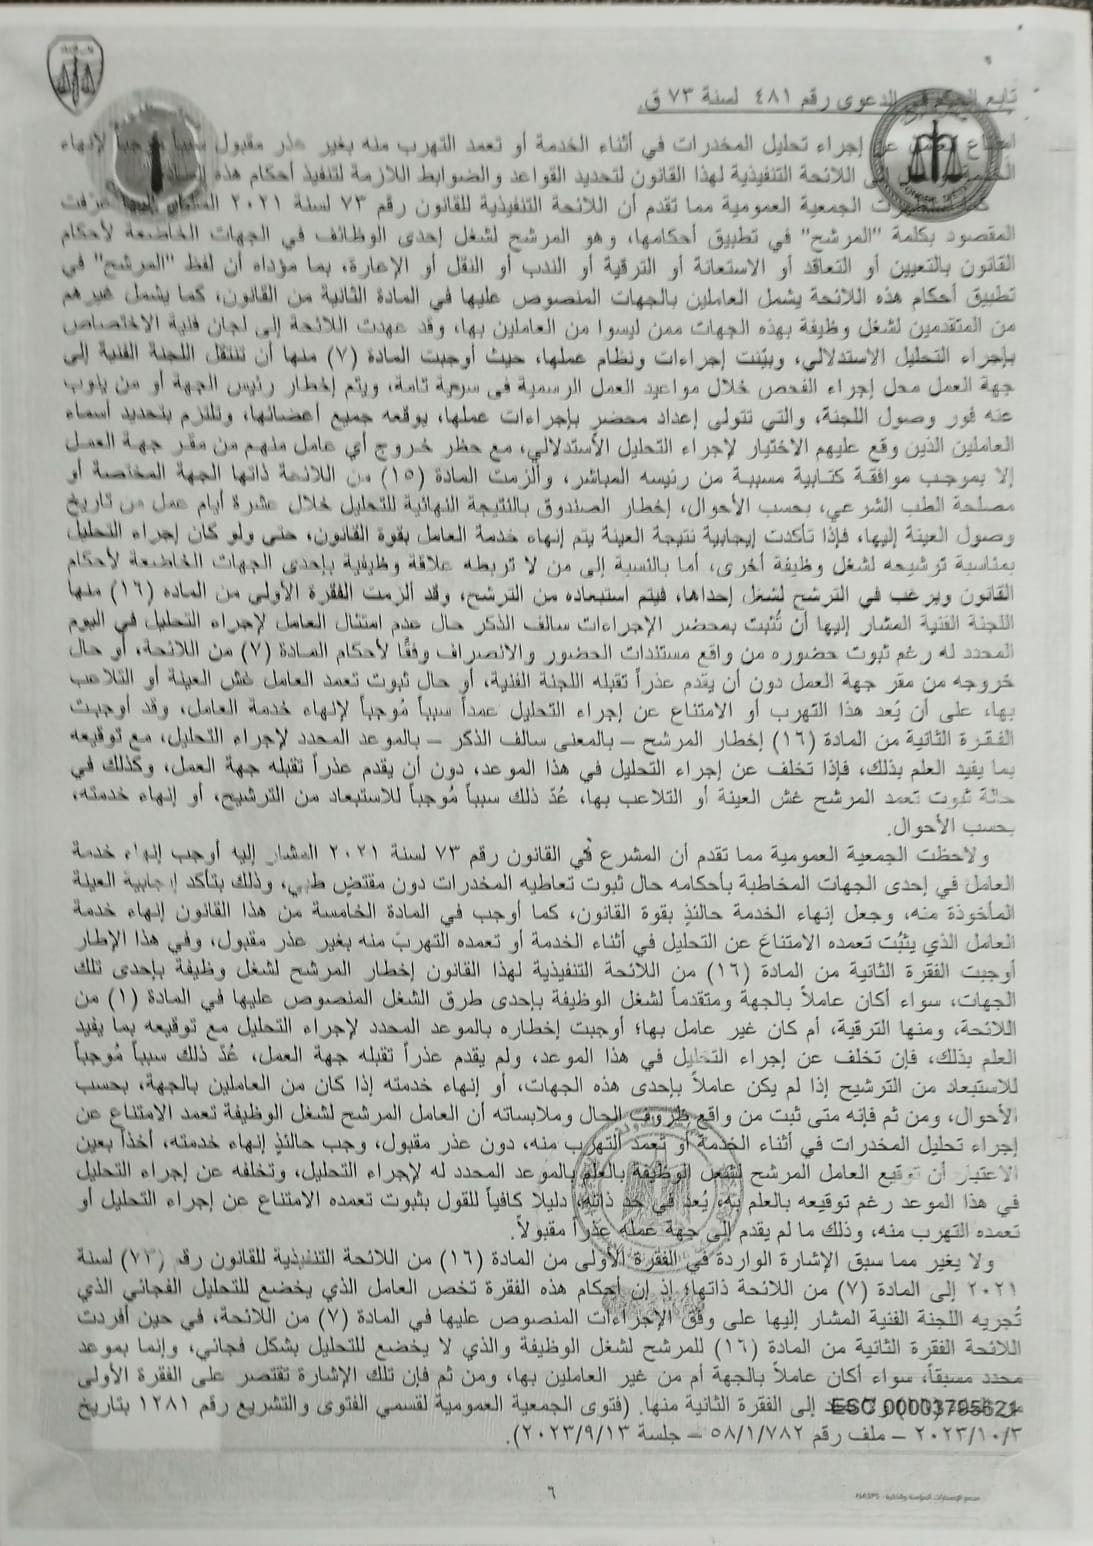 ٦
تابع الحكم في الدعوى رقم ٤٨١ لسنة ٧٣ ق.
إجراء تحليل المخدرات في أثناء الخدمة أو تعمد التهرب منه بغير عذر مقبول سبباً موجباً لإنهاء
اللائحة التنفيذية لهذا القانون لتحديد القواعد والضوابط اللازمة لتنفيذ أحكام هذه
الجمعية العمومية مما تقدم أن اللائحة التنفيذية للقانون رقم ٧٣ لسنة ٢٠٢١ المشار إليها عرفت
المقصود بكلمة "المرشح" في تطبيق أحكامها، وهو المرشح لشغل إحدى الوظائف في الجهات الخاضعة لأحكام
القانون بالتعيين أو التعاقد أو الاستعانة أو الترقية أو الندب أو النقل أو الإعارة، بما مؤداه أن لفظ "المرشح" في
تطبيق أحكام هذه اللائحة يشمل العاملين بالجهات المنصوص عليها في المادة الثانية من القانون، كما يشمل غيرهم
من المتقدمين لشغل وظيفة بهذه الجهات ممن ليسوا من العاملين بها، وقد عهدت اللائحة إلى لجان فنية الاختصاص
بإجراء التحليل الاستدلالي، وبيّنت إجراءات ونظام عملها، حيث أوجبت المادة (٧) منها أن تنتقل اللجنة الفنية إلى
جهة العمل محل إجراء الفحص خلال مواعيد العمل الرسمية في سرية تامة، ويتم إخطار رئيس الجهة أو من ينوب
عنه فور وصول اللجنة، والتي تتولى إعداد محضر بإجراءات عملها، يوقعه جميع أعضائها، وتلتزم بتحديد أسماء
العاملين الذين وقع عليهم الاختيار لإجراء التحليل الاستدلالي، مع حظر خروج أي عامل منهم من مقر جهة العمل
إلا بموجب موافقة كتابية مسببة من رئيسه المباشر، وألزمت المادة (١٥) من اللائحة ذاتها الجهة المختصة أو
مصلحة الطب الشرعي، بحسب الأحوال، إخطار الصندوق بالنتيجة النهائية للتحليل خلال عشرة أيام عمل من تاريخ
وصول العينة إليها، فإذا تأكدت إيجابية نتيجة العينة يتم إنهاء خدمة العامل بقوة القانون، حتى ولو كان إجراء التحليل
بمناسبة ترشيحه لشغل وظيفة أخرى، أما بالنسبة إلى من لا تربطه علاقة وظيفية بإحدى الجهات الخاضعة لأحكام
القانون ويرغب في الترشح لشغل إحداها، فيتم استبعاده من الترشح، وقد ألزمت الفقرة الأولى من المادة (١٦) منها
اللجنة الفنية المشار إليها أن تُثبت بمحضر الإجراءات سالف الذكر حال عدم امتثال العامل لإجراء التحليل في اليوم
المحدد له رغم ثبوت حضوره من واقع مستندات الحضور والانصراف وفقًا لأحكام المادة (٧) من اللائحة، أو حال
خروجه من مقر جهة العمل دون أن يقدم عذراً تقبله اللجنة الفنية، أو حال ثبوت تعمد العامل غش العينة أو التلاعب
بها، على أن يُعد هذا التهرب أو الامتناع عن إجراء التحليل عمداً سبباً مُوجباً لإنهاء خدمة العامل، وقد أوجبت
الفقرة الثانية من المادة (١٦) إخطار المرشح – بالمعنى سالف الذكر – بالموعد المحدد لإجراء التحليل، مع توقيعه
بما يفيد العلم بذلك، فإذا تخلف عن إجراء التحليل في هذا الموعد، دون أن يقدم عذراً تقبله جهة العمل، وكذلك في
حالة ثبوت تعمد المرشح غش العينة أو التلاعب بها، عُدّ ذلك سبباً مُوجباً للاستبعاد من الترشيح، أو إنهاء خدمته،
بحسب الأحوال.
ولاحظت الجمعية العمومية مما تقدم أن المشرع في القانون رقم ٧٣ لسنة ٢٠٢١ المشار إليه أوجب إنهاء خدمة
العامل في إحدى الجهات المخاطبة بأحكامه حال ثبوت تعاطيه المخدرات دون مقتضٍ طبي، وذلك بتأكد إيجابية العينة
المأخوذة منه، وجعل إنهاء الخدمة حالئذٍ بقوة القانون، كما أوجب في المادة الخامسة من هذا القانون إنهاء خدمة
العامل الذي يثبُت تعمده الامتناعَ عن التحليل في أثناء الخدمة أو تعمده التهربَ منه بغير عذر مقبول، وفي هذا الإطار
أوجبت الفقرة الثانية من المادة (١٦) من اللائحة التنفيذية لهذا القانون إخطار المرشح لشغل وظيفة بإحدى تلك
الجهات، سواء أكان عاملاً بالجهة ومتقدماً لشغل الوظيفة بإحدى طرق الشغل المنصوص عليها في المادة (١) من
اللائحة، ومنها الترقية، أم كان غير عامل بها؛ أوجبت إخطاره بالموعد المحدد لإجراء التحليل مع توقيعه بما يفيد
العلم بذلك، فإن تخلف عن إجراء التحليل في هذا الموعد، ولم يقدم عذراً تقبله جهة العمل، عُدّ ذلك سبباً مُوجباً
للاستبعاد من الترشيح إذا لم يكن عاملاً بإحدى هذه الجهات، أو إنهاء خدمته إذا كان من العاملين بالجهة، بحسب
الأحوال، ومن ثم فإنه متى ثبت من واقع ظروف الحال وملابساته أن العامل المرشح لشغل الوظيفة تعمد الامتناع عن
إجراء تحليل المخدرات في أثناء الخدمة أو تعمد التهرب منه، دون عذر مقبول، وجب حالئذٍ إنهاء خدمته، أخذاً بعين
الاعتبار أن توقيع العامل المرشح لشغل الوظيفة بالعلم بالموعد المحدد له لإجراء التحليل، وتخلفه عن إجراء التحليل
في هذا الموعد رغم توقيعه بالعلم به، يُعد في حد ذاته، دليلا كافياً للقول بثبوت تعمده الامتناع عن إجراء التحليل أو
تعمده التهرب منه، وذلك ما لم يقدم إلى جهة عمله عذراً مقبولاً.
ولا يغير مما سبق الإشارة الواردة في الفقرة الأولى من المادة (١٦) من اللائحة التنفيذية للقانون رقم (٧٣) لسنة
٢٠٢١ إلى المادة (٧) من اللائحة ذاتها؛ إذ إن أحكام هذه الفقرة تخص العامل الذي يخضع للتحليل الفجائي الذي
تُجريه اللجنة الفنية المشار إليها على وفق الإجراءات المنصوص عليها في المادة (٧) من اللائحة، في حين أفردت
اللائحة الفقرة الثانية من المادة (١٦) للمرشح لشغل الوظيفة والذي لا يخضع للتحليل بشكل فجائي، وإنما بموعد
محدد مسبقاً، سواء أكان عاملاً بالجهة أم من غير العاملين بها، ومن ثم فإن تلك الإشارة تقتصر على الفقرة الأولى
ESC 00003795621 إلى الفقرة الثانية منها. (فتوى الجمعية العمومية لقسمي الفتوى والتشريع رقم ١٢٨١ بتاريخ
٢٠٢٣/١٠/٣ – ملف رقم ٥٨/١/٧٨٢ – جلسة ٢٠٢٣/٩/١٣).
٦